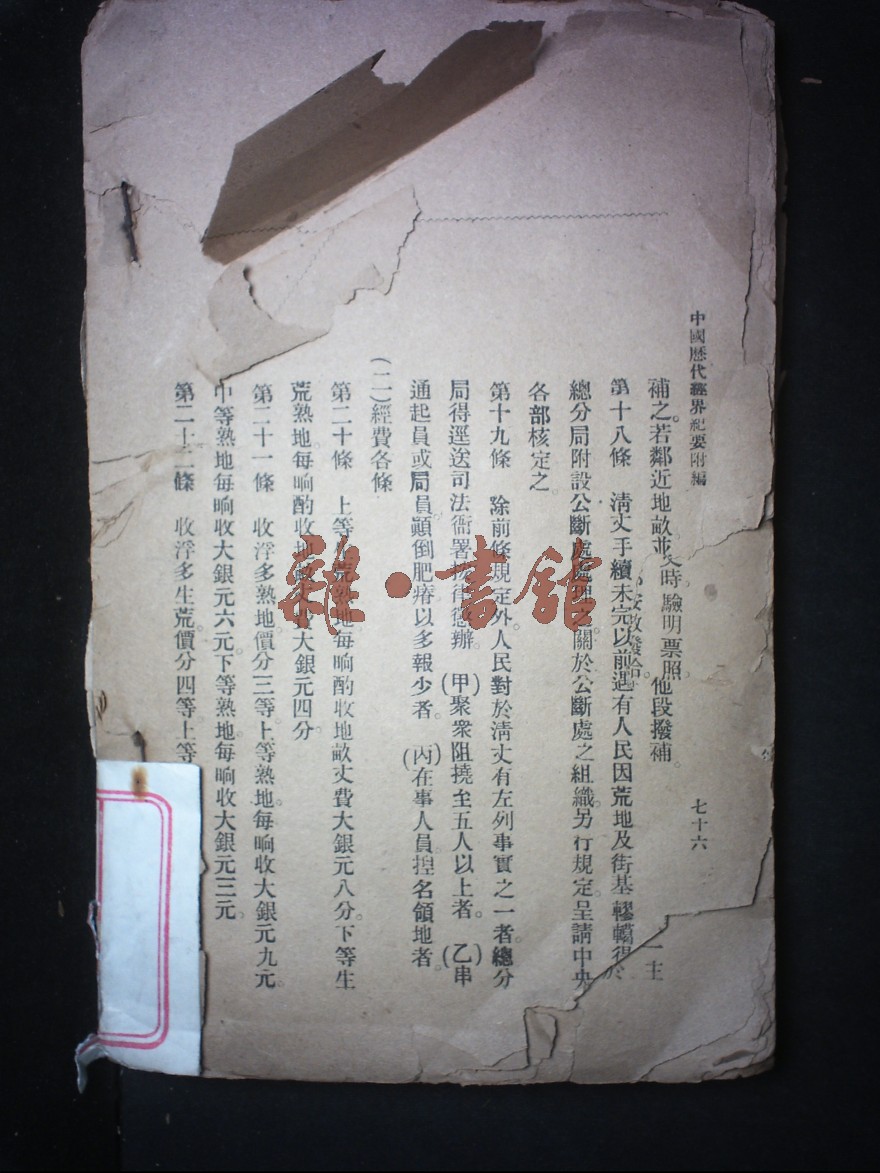 中國歷代經界紀要附編
七十六
補之。若鄰近地畝並
時驗明票照
他段撥補。
一主
第十八條　清丈手續未完以前。遇有人民因荒地及街基轇轕。得於
總分局附設公斷處處理之。關於公斷處之組織。另行規定。呈請中央
各部核定之。
第十九條　除前條規定外。人民對於清丈有左列事實之一者。總分
局得逕送司法衙署按律懲辦。(甲)聚衆阻撓至五人以上者。(乙)串
通起員或局員。顚倒肥瘠以多報少者。(丙)在事人員揑名領地者。
(二)經費各條
第二十條　上等生荒熟地。每晌酌收地畝丈費大銀元八分。下等生
荒熟地。每晌酌收地畝丈費大銀元四分。
第二十一條　收浮多熟地價分三等。上等熟地。每晌收大銀元九元。
中等熟地。每晌收大銀元六元。下等熟地。每晌收大銀元三元。
第二十二條　收浮多生荒價分四等。上等
雜·書館